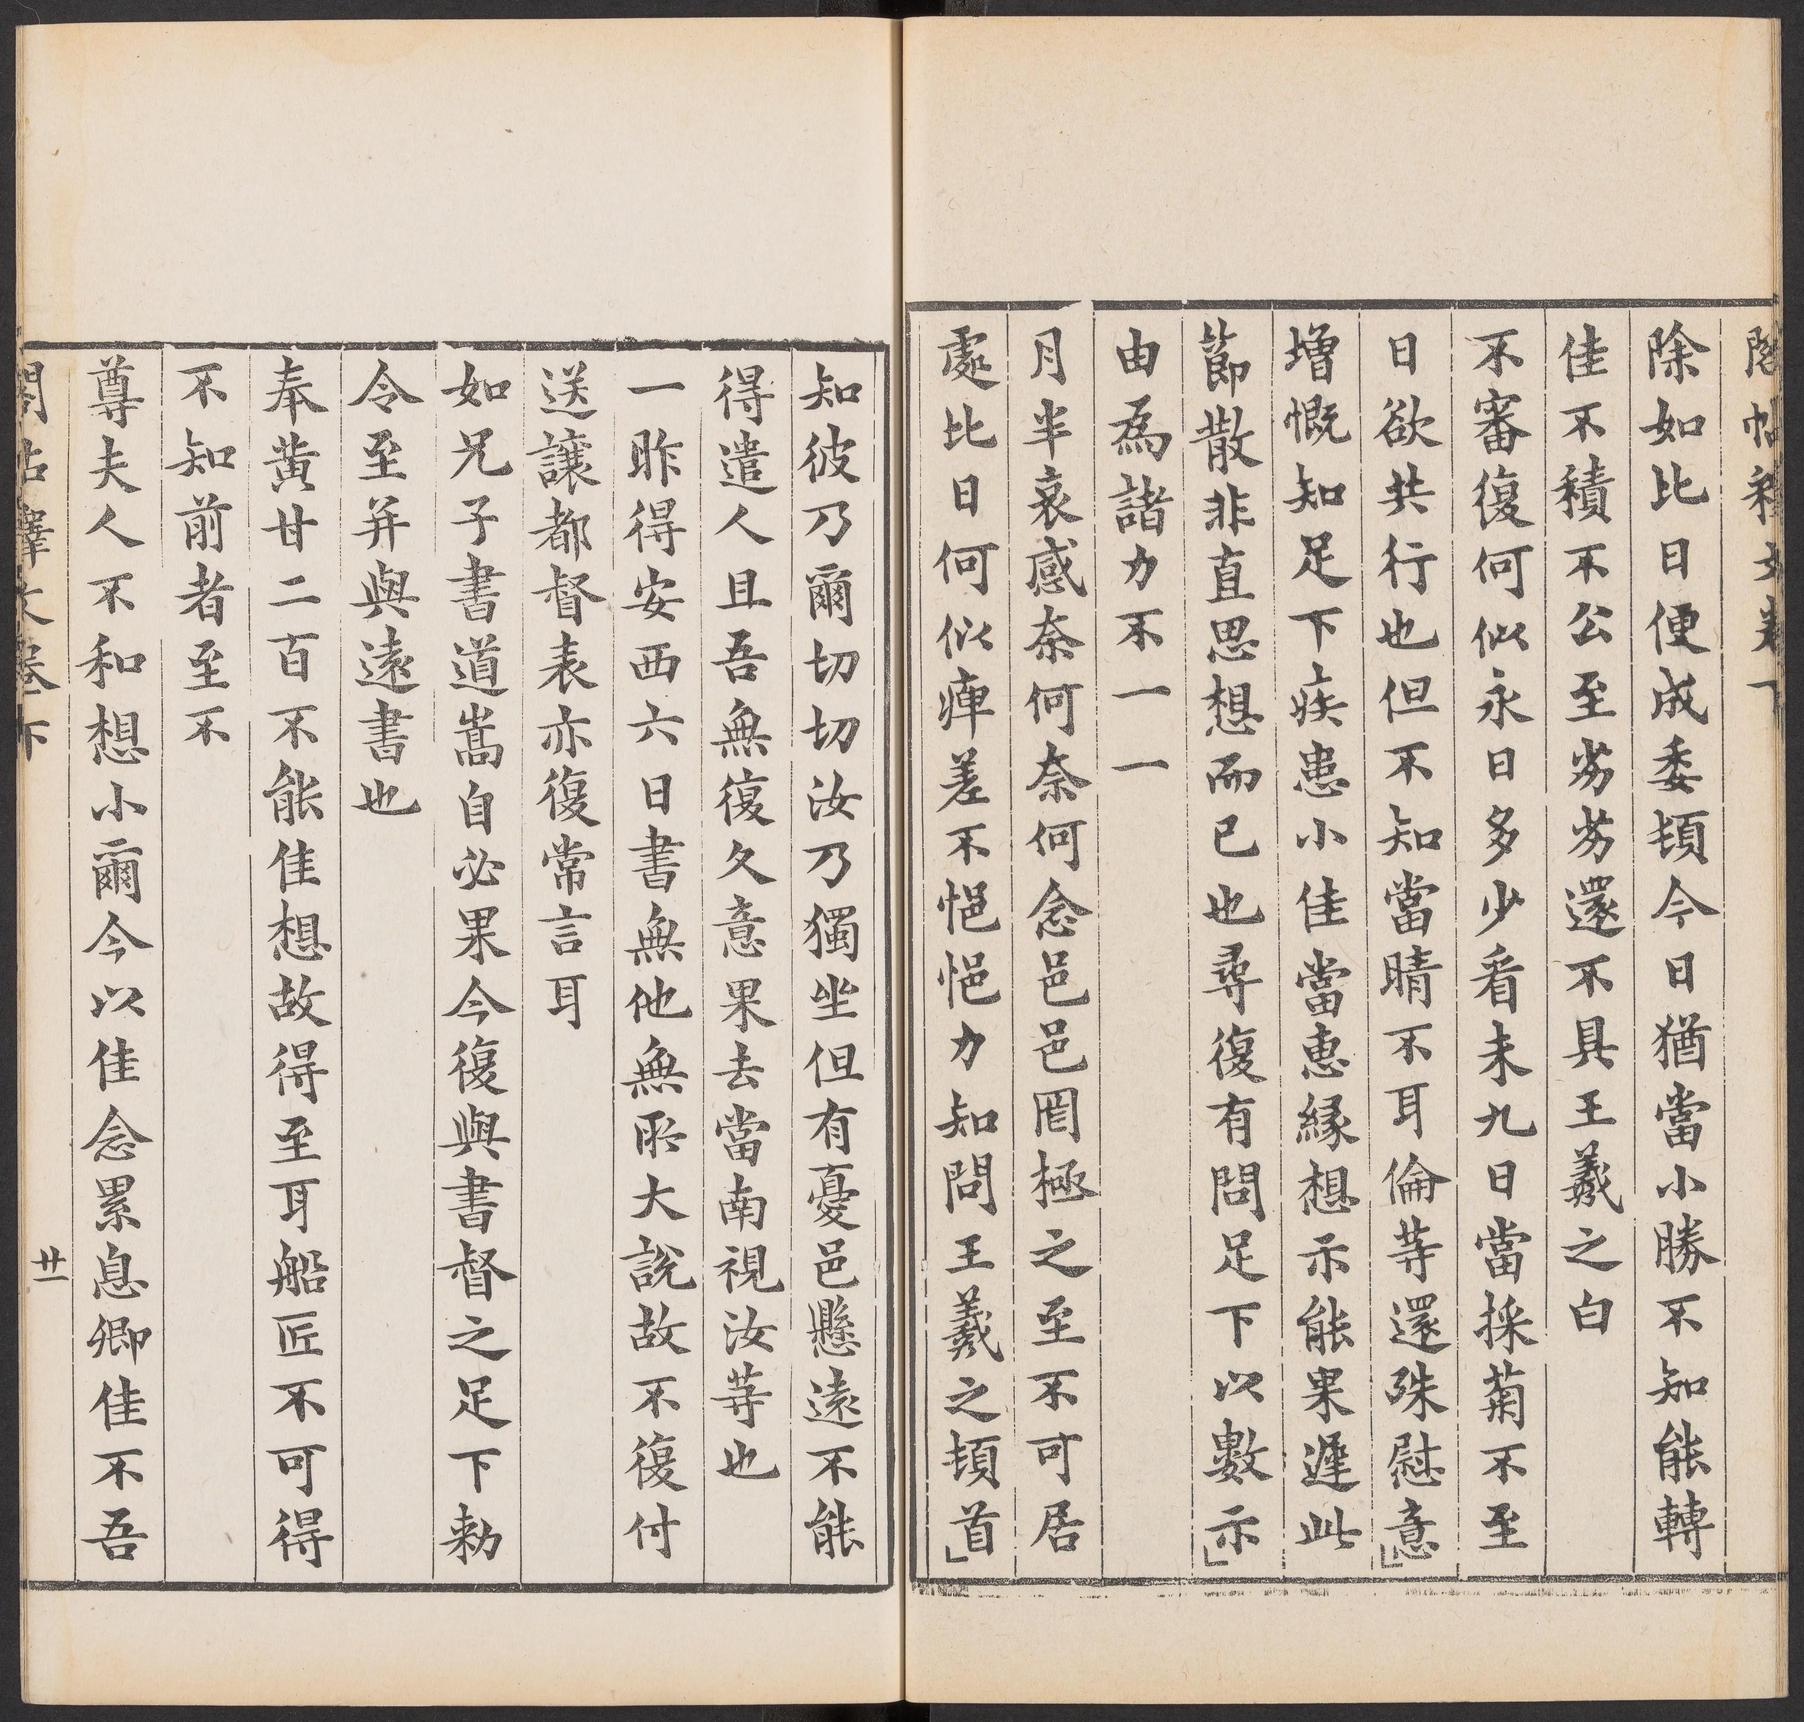 閣帖釋文卷下
除如比日便成委頓今日猶當小勝不知能轉
佳不積不公至劣劣還不具王羲之白
不審復何似永日多少看未九日當採菊不至
日欲共行也但不知當晴不耳倫等還殊慰意」
增慨知足下疾患小佳當惠緣想示能果遲此
節散非直思想而已也尋復有問足下以數示」
由為諸力不一一
月半哀感奈何奈何念邑邑罔極之至不可居
處比日何似痺差不悒悒力知問王羲之頓首」
知彼乃爾切切汝乃獨坐但有憂邑懸遠不能
得遣人且吾無復久意果去當南視汝等也
一昨得安西六日書無他無所大說故不復付
送讓都督表亦復常言耳
如兄子書道嵩自必果今復與書督之足下勅
令至并與遠書也
奉黃甘二百不能佳想故得至耳船匠不可得
不知前者至不
尊夫人不和想小爾今以佳念累息卿佳不吾
閣帖釋文卷下 廿一